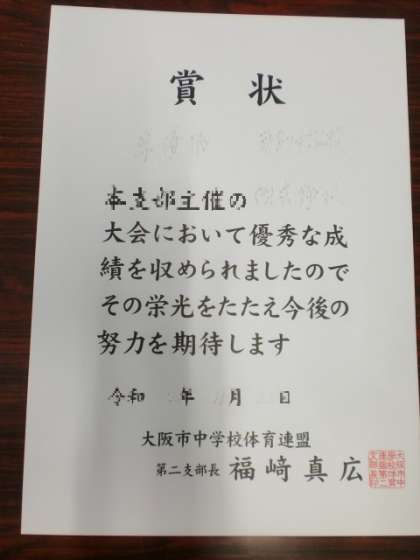 賞状
本支部主催の
大会において優秀な成
績を収められましたので
その栄光をたたえ今後の
努力を期待します
令和 年 月 日
大阪市中学校体育連盟
第二支部長 福﨑真広